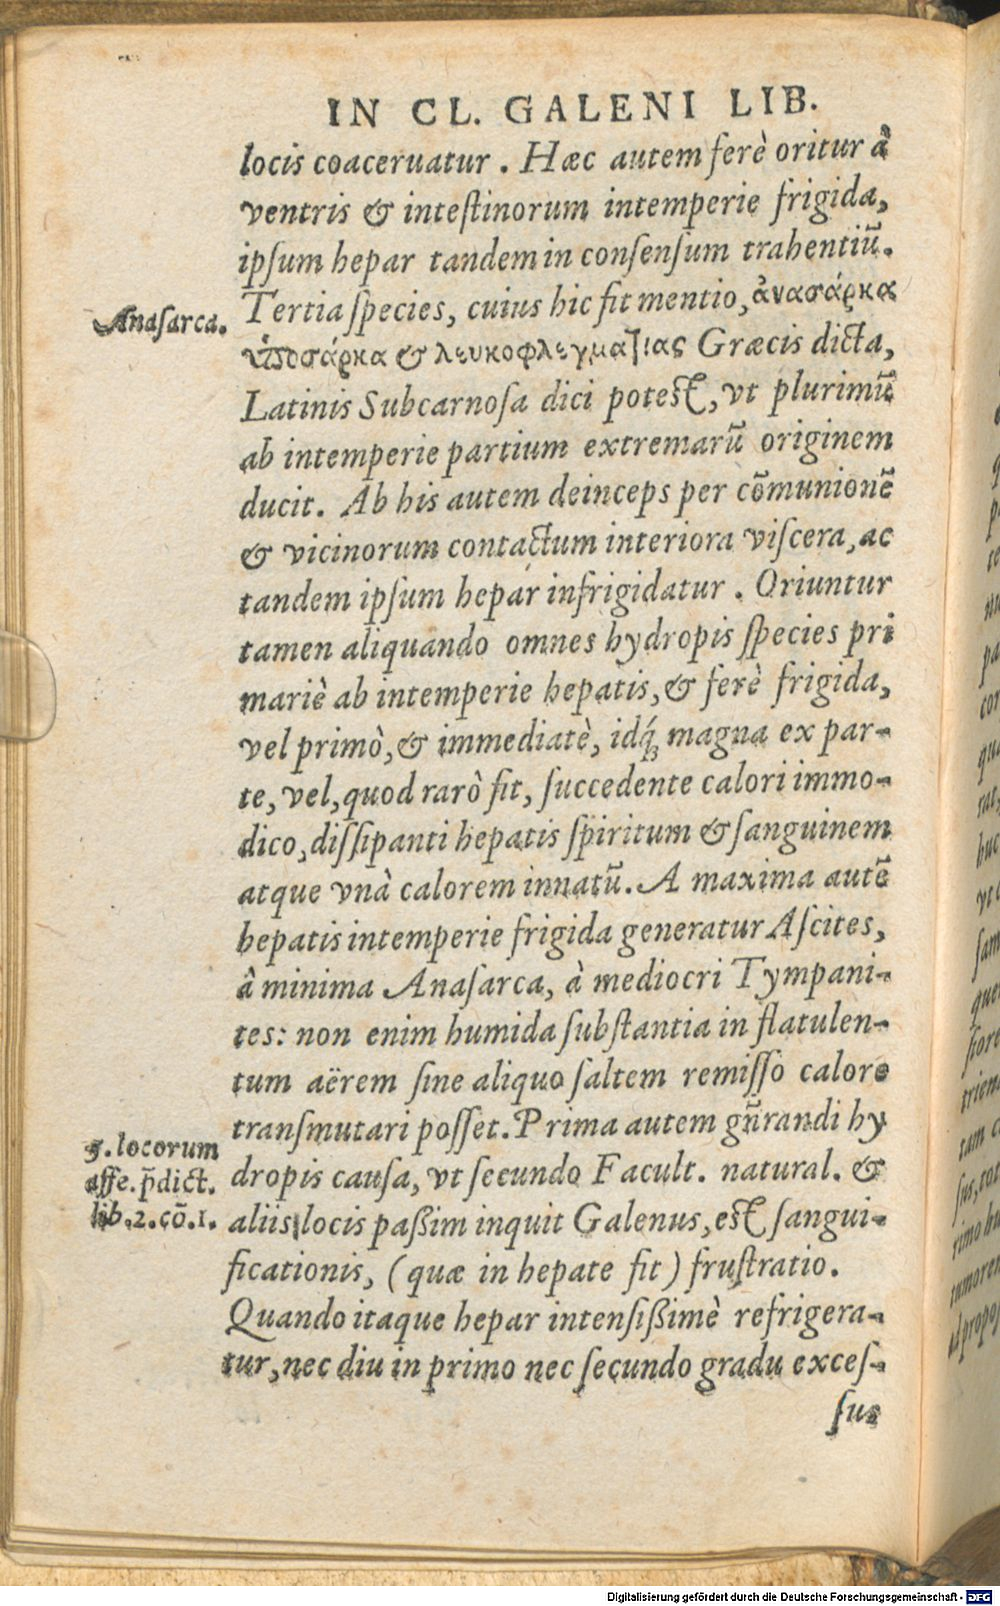 IN CL. GALENI LIB.
locis coaceruatur . Hæc autem ferè oritur à
ventris & intestinorum intemperie frigida,
ipsum hepar tandem in consensum trahentiũ.
Tertia species, cuius hic fit mentio, ἀνασάρκα
Anasarca.
ὑποσάρκα & λευκοφλεγματίας Græcis dicta,
Latinis Subcarnosa dici potest, vt plurimũ
ab intemperie partium extremarũ originem
ducit. Ab his autem deinceps per cõmunionẽ
& vicinorum contactum interiora viscera, ac
tandem ipsum hepar infrigidatur . Oriuntur
tamen aliquando omnes hydropis species pri
mariè ab intemperie hepatis, & ferè frigida,
vel primò, & immediatè, idq́; magna ex par-
te, vel, quod rarò fit, succedente calori immo-
dico, dissipanti hepatis spiritum & sanguinem
atque vnà calorem innatũ. A maxima autẽ
hepatis intemperie frigida generatur Ascites,
à minima Anasarca, à mediocri Tympani-
tes: non enim humida substantia in flatulen-
tum aërem sine aliquo saltem remisso calore
transmutari posset. Prima autem gñrandi hy
dropis causa, vt secundo Facult. natural. &
5. locorum
affe. p̃dict.
lib. 2. cõ. 1.
aliis locis paßim inquit Galenus, est sangui-
ficationis, (quæ in hepate fit) frustratio.
Quando itaque hepar intensißimè refrigera-
tur, nec diu in primo nec secundo gradu exces-
sus
Digitalisierung gefördert durch die Deutsche Forschungsgemeinschaft - DFG